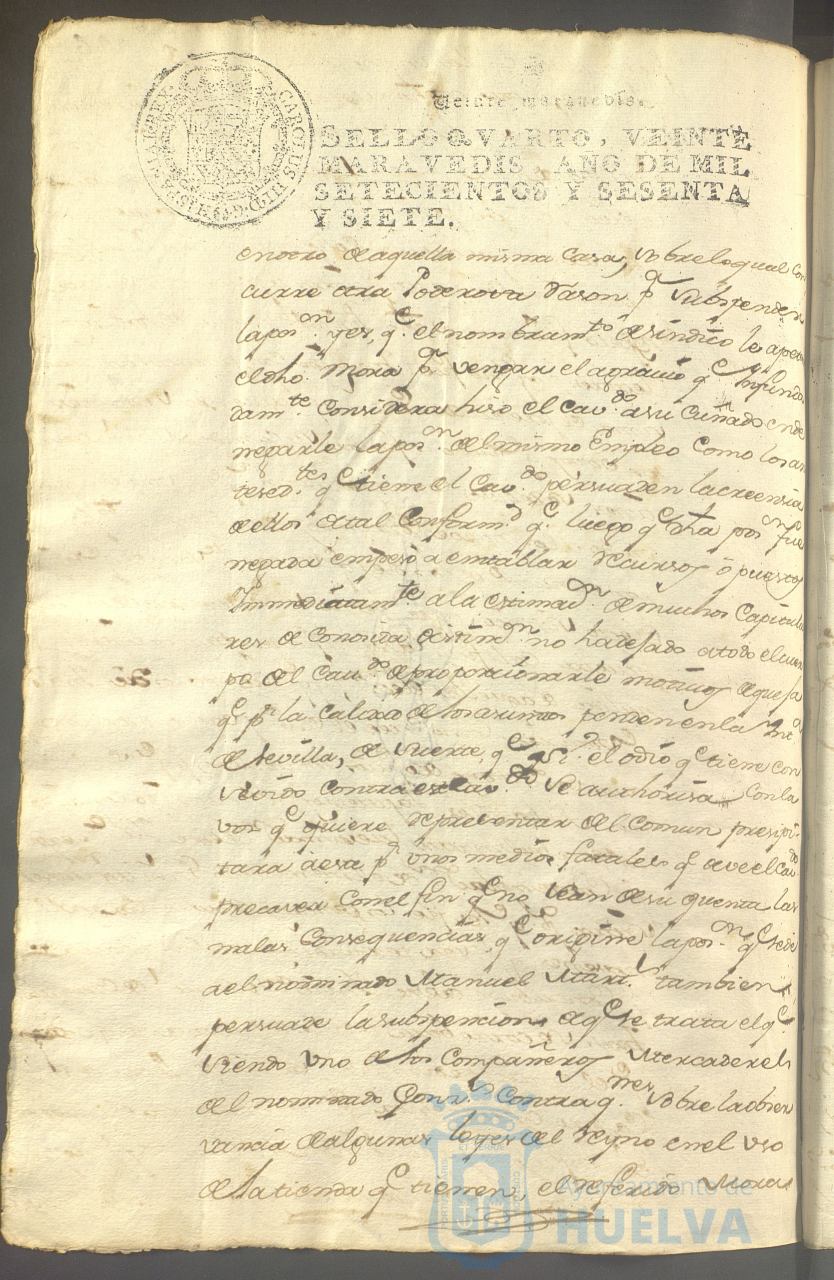 CAROLUS III D.G. HISPANIAR. REX
Veinte maravedis.
SELLO QVARTO, VEINTE
MARAVEDIS, AÑO DE MIL
SETECIENTOS Y SESENTA
Y SIETE.
en otro de aquella misma Casa, sobre lo qual con
curre otra Poderosa rason pª subspender
la posⁿ. y es, qᵉ. el nombramᵗᵒ de sindico le apete
el dho. Mora pª vengar el agravio qᵉ infunda
damᵗᵉ Considera hiso el Cavᵈᵒ a su Cuñado en de
negarle la posⁿ. del mismo Empleo como los an
tesedᵗᵉˢ qᵉ tiene el Cavᵈᵒ persuaden la creensia
de ellos a tal Conformᵈ qᵉ. luego qᵉ dha posⁿ fue
negada empesó a entablar recursos opuestos
Immediatamᵗᵉ a la estimasⁿ. de muchos Capitula
res de Conosida distinⁿ no ha dejado a todo el cuer
po del Cavᵈᵒ de proporcionarle motivos de quexa
qᵉ pʳ la calidad de los asumtos penden en la
de Sevilla, de suerte, qᵉ si el odio qᵉ tiene con
sevido contra este Cavᵈᵒ se authorisa con la
vos qᵉ quiere representar del Comun presipi
tara a esa pʳ unos medios fatales qᵉ deve el Cavᵈᵒ
precaver con el fin qᵉ no sean de su quenta las
malas Consequencias qᵉ origine la posⁿ. qᵉ se dé
a el nominado Manuel Martⁿ. tambien
persuade la subspencion de qᵉ se trata el qᵉ
siendo uno de los Compañeros Mercaderes
del nominado Gonzˢ contra qⁿᵉˢ sobre la obser
vancia de algunas leyes del reyno en el uso
de la tienda qᵉ tienen, el referido Mora
Ayuntamiento de
HUELVA